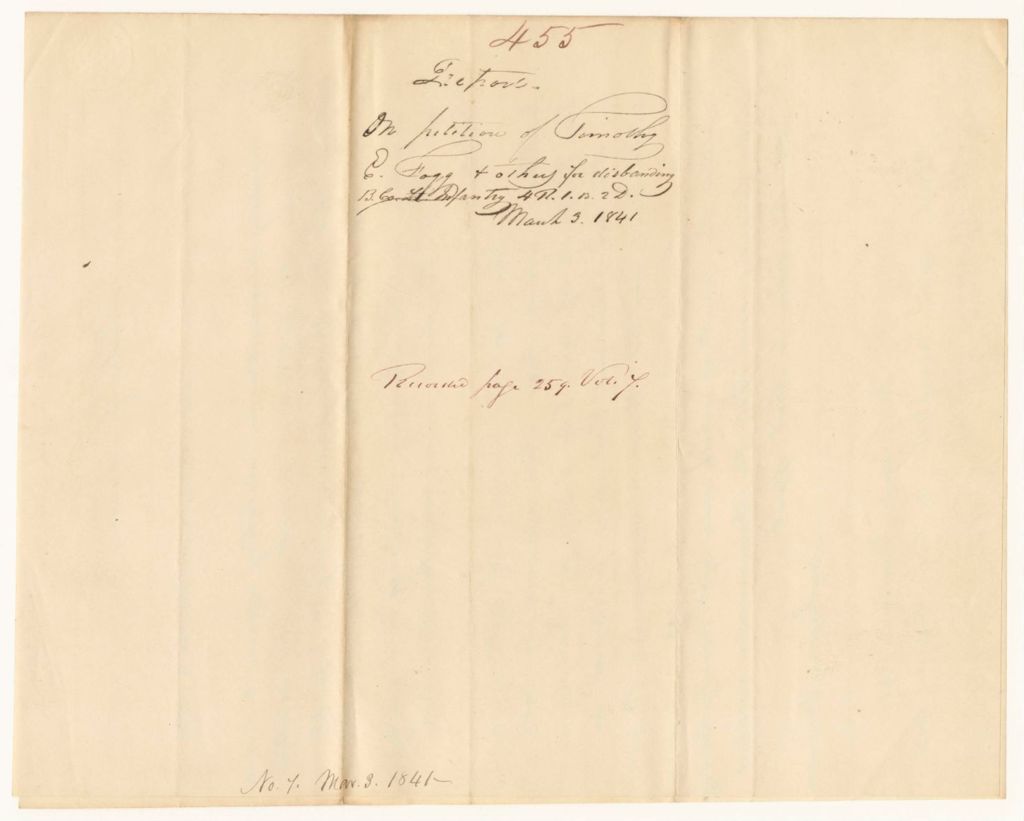 455
Report
On petition of Timothy
E. Fogg & others for disbanding
B. Co. Lt. Infantry 4 R. 1. B. 2 D.
March 3. 1841
Recorded page 259. Vol. 7.
No. 7. Mar. 3. 1841